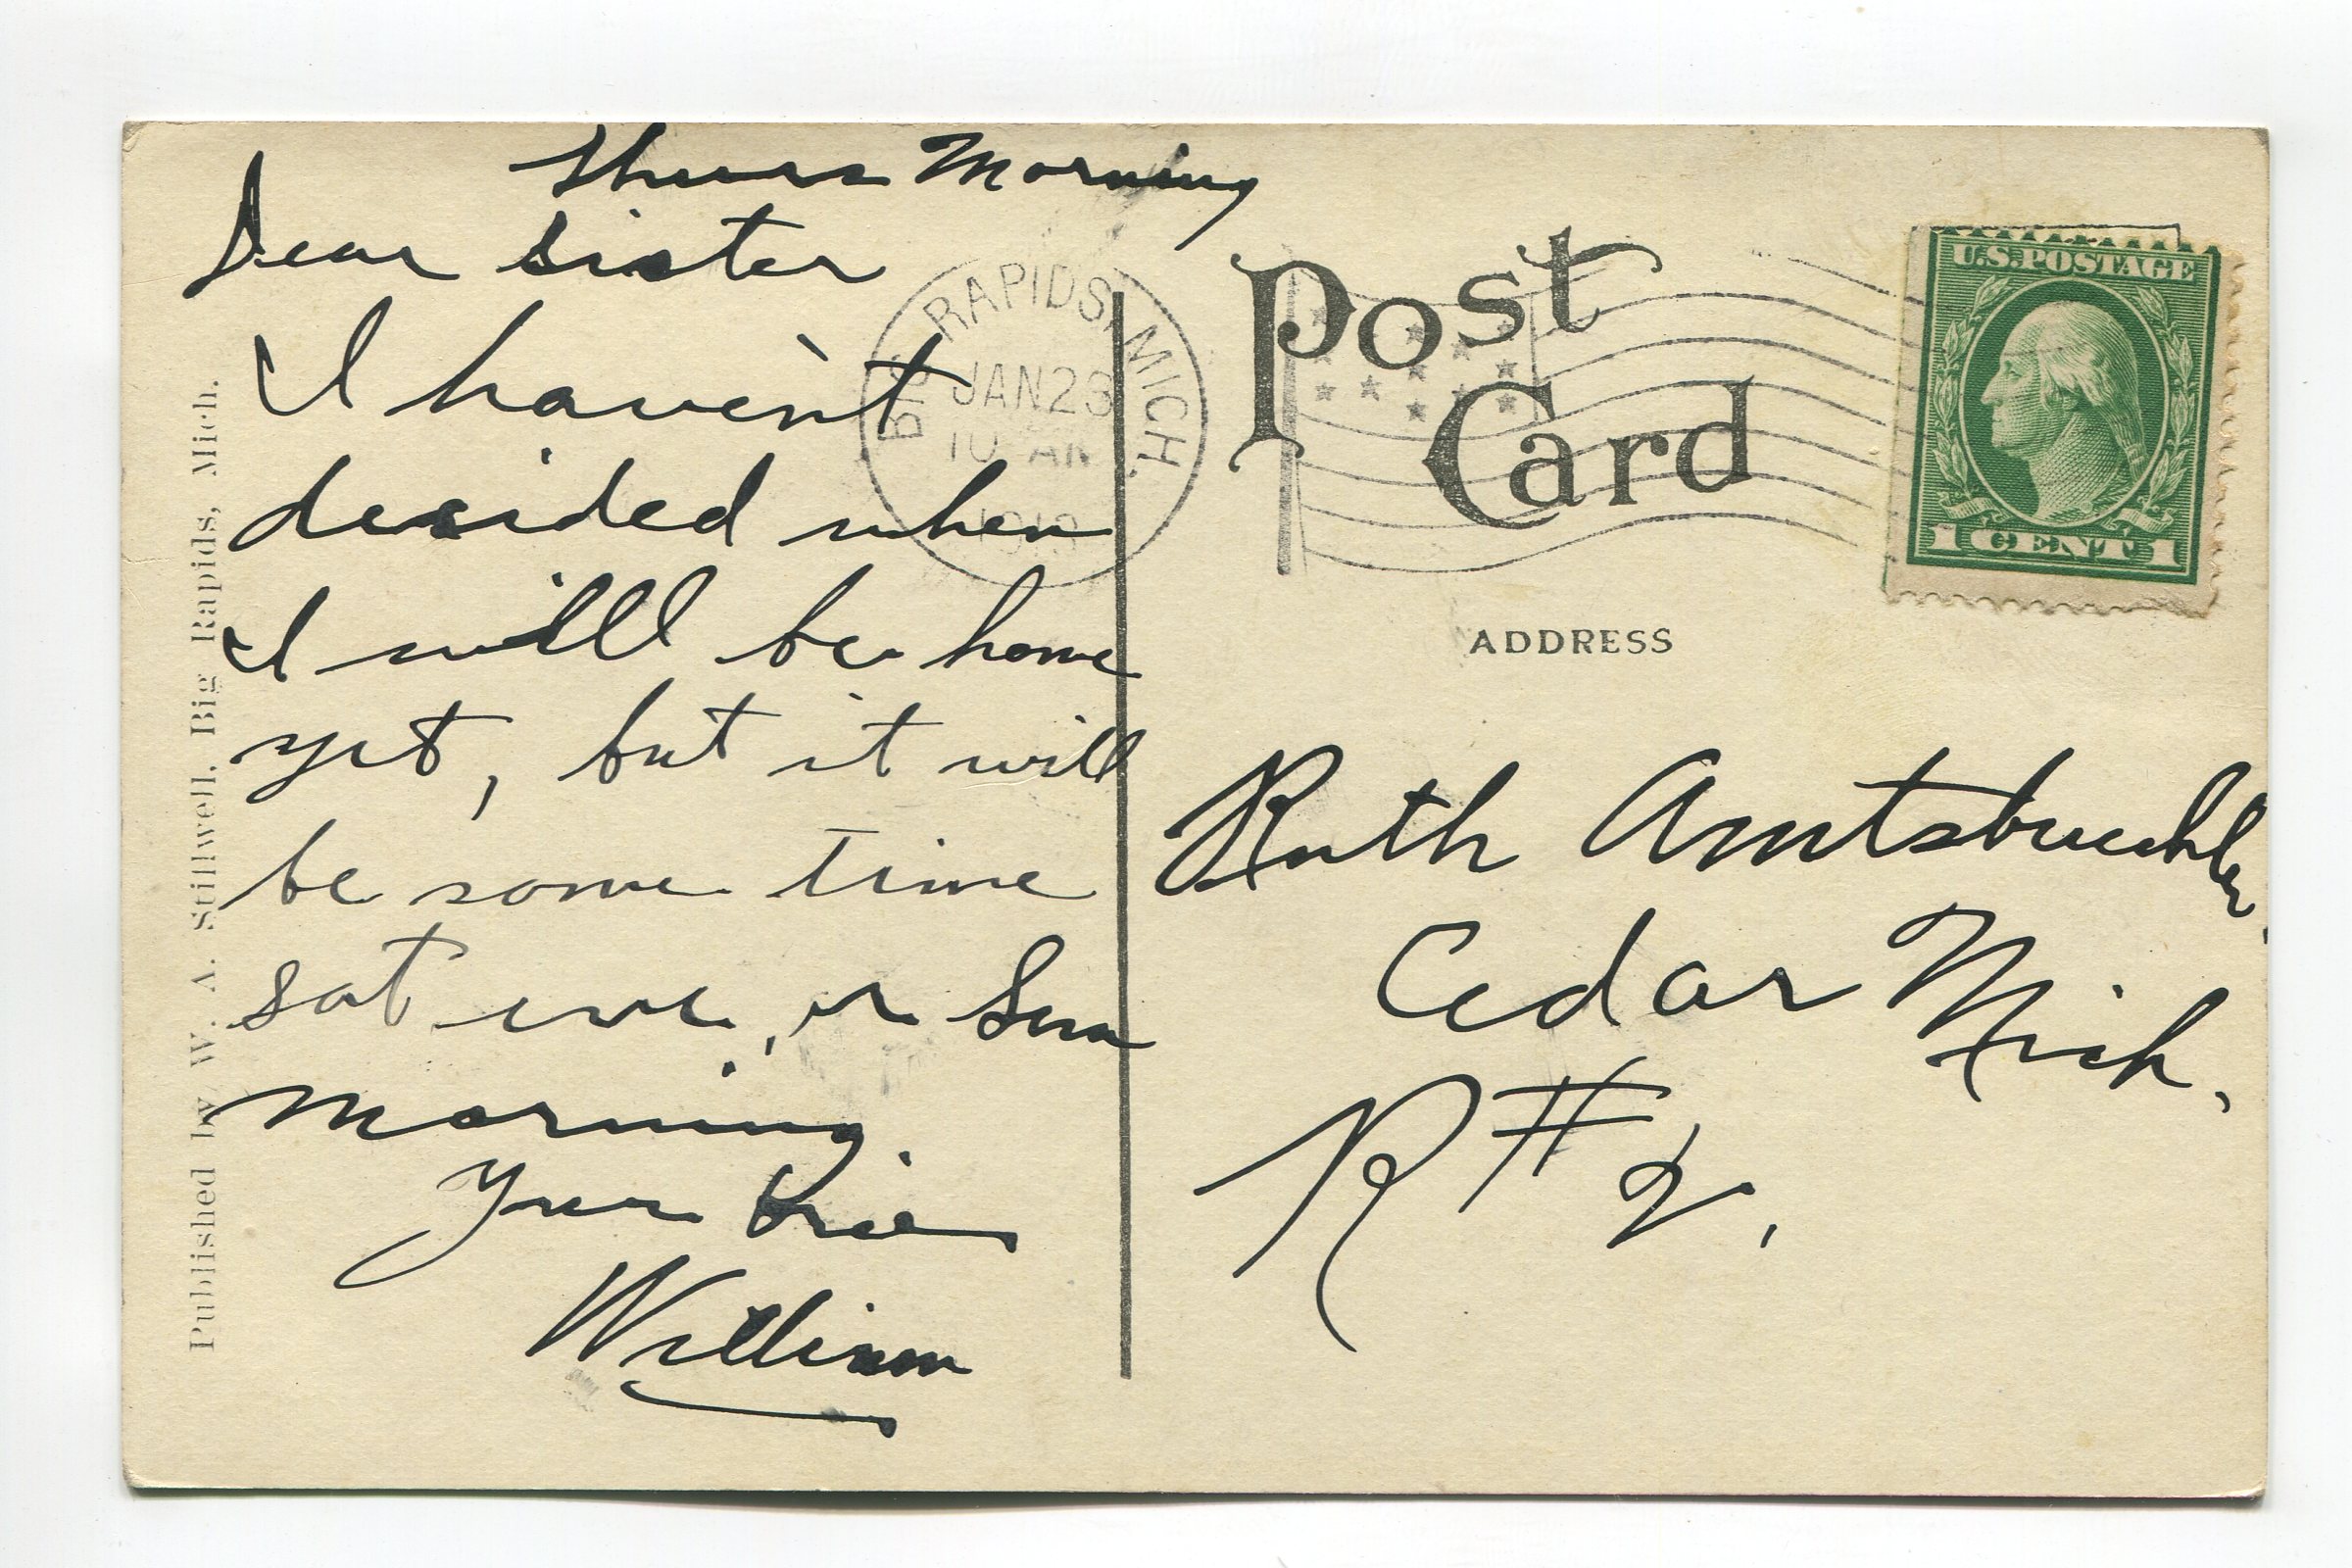 Thurs Morning
Dear sister
I haven't
decided when
I will be home
yet, but it will
be some time
sat eve, or Sun
morning
Your Bro
William
Published by W. A. Stillwell, Big Rapids, Mich.
BIG RAPIDS, MICH.
JAN 23
10 AM
1913
Post
Card
U.S. POSTAGE
1 CENT 1
ADDRESS
Ruth Amtsbuechler
Cedar Mich.
R # 2.